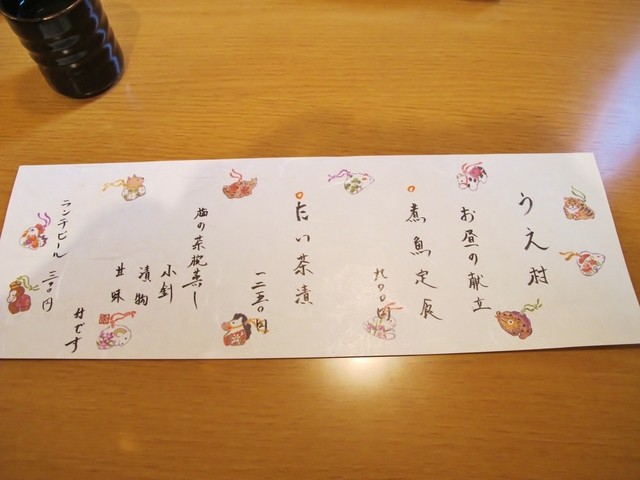 うえ村
お昼の献立
煮魚定食
九〇〇円
たい茶漬
一二五〇円
菜の茶碗蒸し
小針
漬物
甘味
付です
ランチビール 三〇〇円